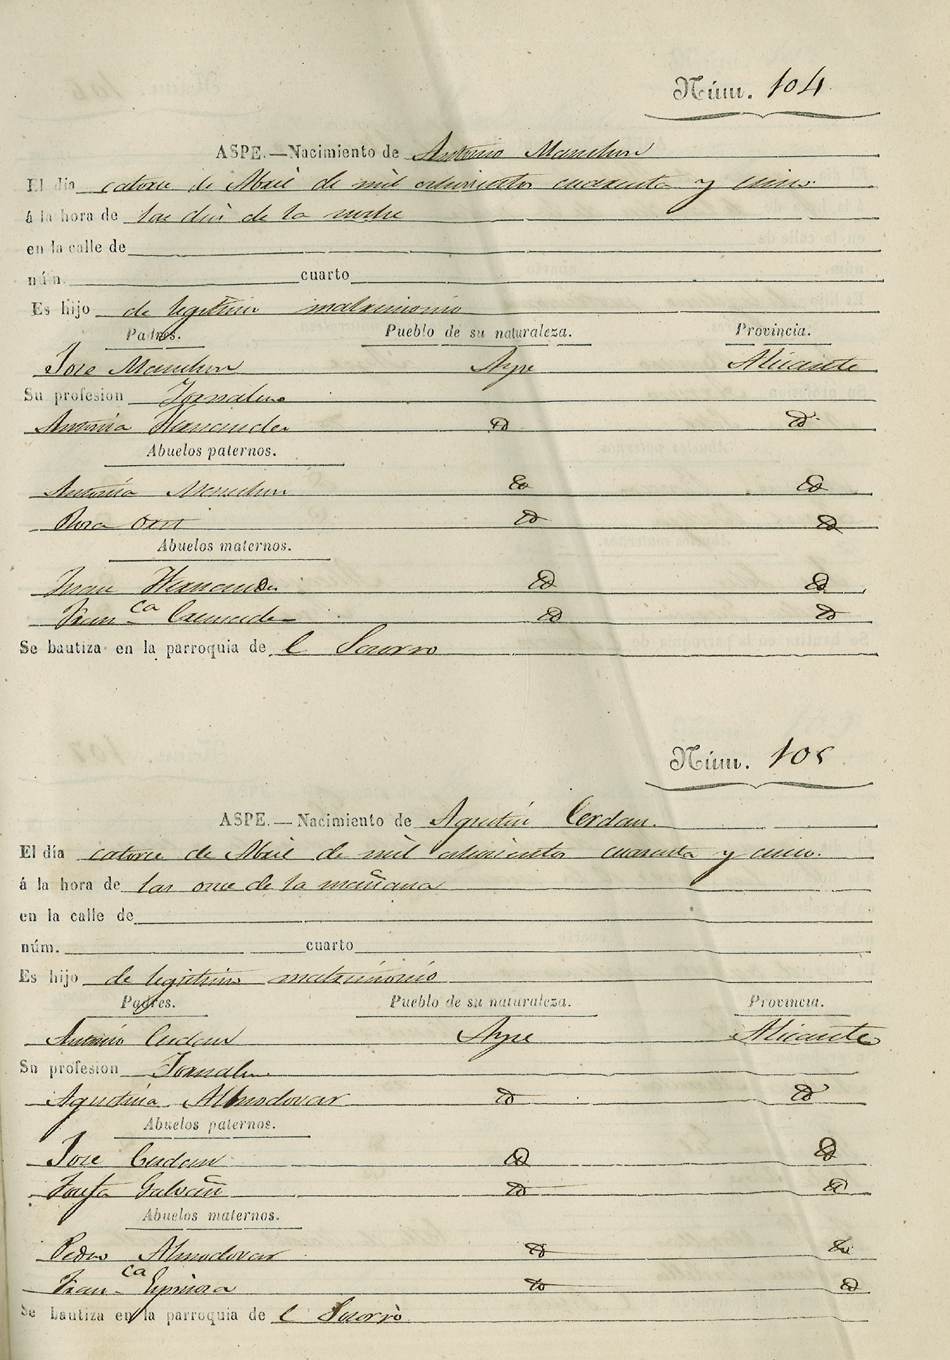 Núm. 104
ASPE.—Nacimiento de Antonio Manchon
El día catorce de Abril de mil ochocientos cuarenta y cinco
á la hora de las dies de la noche
en la calle de
núm. cuarto
Es hijo de legitimo matrimonio
Padres. Pueblo de su naturaleza. Provincia.
Jose Manchon Aspe Alicante
Su profesion Jornalero
Antonia Hernandez
Abuelos paternos.
Manchon
Rosa
Abuelos maternos.
Juan Hernandez
Fran.ca
Se bautiza en la parroquia de l Socorro
Núm. 105
ASPE.—Nacimiento de Agustin Cerdan.
El día catorce de Abril de mil ochocientos cuarenta y cinco.
á la hora de las once de la mañana
en la calle de
núm. cuarto
Es hijo de legitimo matrimonio
Padres. Pueblo de su naturaleza. Provincia.
Antonio Cerdan Aspe Alicante
Su profesion Jornalero
Agustina Almodovar
Abuelos paternos.
Jose Cerdan
Josefa Galvañ
Abuelos maternos.
Pedro Almodovar
Fran.ca Espinosa
Se bautiza en la parroquia de l Socorro